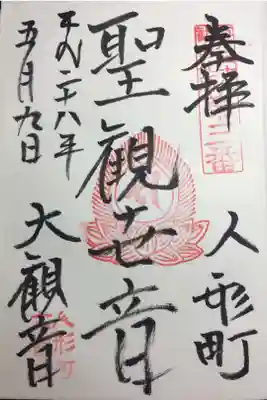 奉拝
人形町
聖観世音
大観音
平成二十八年
五月九日